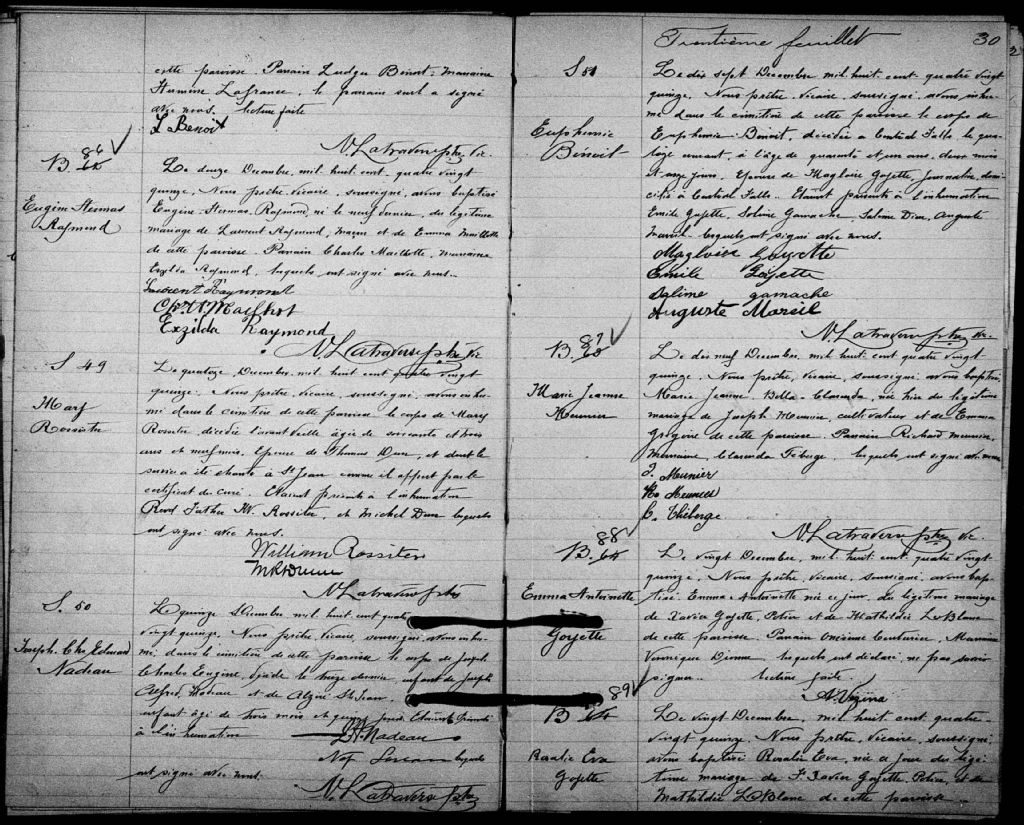 cette paroisse. Parrain Ludger Benoit, Marraine
Lafrance, le parrain seul a signé
avec nous. lecture faite
L Benoit
N. Latraverse ptre Vic
B. 86
Eugène Hermas
Raymond
Le douze Decembre, mil huit cent, quatre vingt
quinze, Nous prêtre, vicaire, soussigné, avons baptisé
Eugène Hermas Raymond, né le neuf dernier, du légitime
mariage de Laurent Raymond, Maçon et de Emma Maillotte
de cette paroisse. Parrain Charles Maillotte, marraine
Exzilda Raymond, lesquels ont signé avec nous.
Laurent Raymond
Chs. Mailhot
Exzilda Raymond
N. Latraverse ptre Vic
S 49
Mary
Rossiter
Le quatorze, Decembre, mil huit cent quatre vingt
quinze, Nous prêtre, Vicaire, soussigné, avons inhu-
mé dans le cimetière de cette paroisse le corps de Mary
Rossiter, décédée l'avant veille âgée de soixante et trois
ans et neuf mois, Epouse de Thomas Dunn, et dont le
service a été chanté à St Jean comme il appert par le
certificat du curé. Etaient présents à l'inhumation
Revd Father W. Rossiter, et Michel Dunn lesquels
ont signé avec nous.
William Rossiter
N. Latraverse ptre
S. 50
Joseph. Chs Edmard
Nadeau
Le quinze Decembre mil huit cent quatre
vingt quinze, Nous prêtre, vicaire, soussigné avons inhu-
mé, dans le cimetière de cette paroisse le corps de Joseph
Charles Eugène, décédé le treize dernier, enfant de Joseph
Alfred Nadeau et de Alzire St Jean,
enfant âgé de trois mois et jours Etaient présents
à l'inhumation J. A. Nadeau
lesquels
ont signé avec nous.
N. Latraverse ptre
Trentième feuillet 30
S 51
Euphemie
Benoit
Le dix sept Decembre mil huit cent quatre vingt
quinze, Nous prêtre, Vicaire, soussigné, avons inhu-
mé dans le cimetière de cette paroisse le corps de
Euphemie Benoit, décédée à Central Falls le qua-
torze courant, à l'âge de quarante et un ans, deux mois
et onze jours, Epouse de Magloire Goyette, journalier, domi-
cilié à Central Falls. Etaient présents à l'inhumation
Emile Goyette, Solime Gamache, Salome Dion, Auguste
Mareil lesquels ont signé avec nous.
Magloire Goyette
Emile Goyette
Solime gamache
Auguste Mareil
N. Latraverse ptre Vic.
B. 87
Marie Jeanne
Meunier
Le dix neuf Decembre, mil huit cent quatre vingt
quinze, Nous prêtre, Vicaire, soussigné avons baptisé,
Marie Jeanne Bella Clarenda née hier du légitime
mariage de Joseph Meunier, cultivateur et de Emma
Grégoire de cette paroisse. Parrain Richard Meunier,
Marraine, Clarenda Téberge, lesquels ont signé avec nous
J. Meunier
R. Meunier
C. Théberge
N. Latraverse ptre Vic.
B. 88
Emma Antoinette
Goyette
Le vingt Decembre, mil huit cent quatre vingt
quinze, Nous prêtre, Vicaire, soussigné, avons bap-
tisé Emma Antoinette née ce jour du légitime mariage
de Xavier Goyette, Potier et de Mathilde LeBlanc
de cette paroisse. Parrain Onésime Couturier, Marraine
Veronique Dionne lesquels ont déclaré ne pas savoir
signer. lecture faite.
N. Vézina
B 89
Rosalie Eva
Goyette
Le vingt Decembre, mil huit cent quatre-
vingt quinze, Nous prêtre, Vicaire, soussigné,
avons baptisé Rosalie Eva, née ce jour du légi-
time mariage de F. Xavier Goyette Potier, et de
Mathilde LeBlanc de cette paroisse.